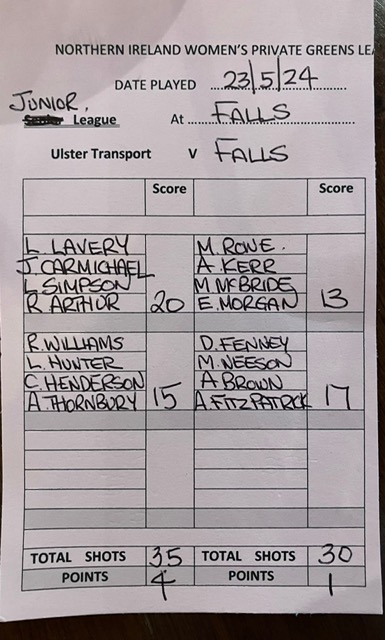 NORTHERN IRELAND WOMEN'S PRIVATE GREENS LEA
DATE PLAYED 23/5/24
JUNIOR.
Senior League At FALLS
Ulster Transport V FALLS
Score Score
L. LAVERY M. ROWE.
J. CARMICHAEL A. KERR
L SIMPSON M McBRIDE
R ARTHUR 20 E. MORGAN 13
R. WILLIAMS D. FENNEY
L. HUNTER M. NEESON
C. HENDERSON A. BROWN
A. THORNBURY 15 A. FITZPATRICK 17
TOTAL SHOTS 35 TOTAL SHOTS 30
POINTS 4 POINTS 1